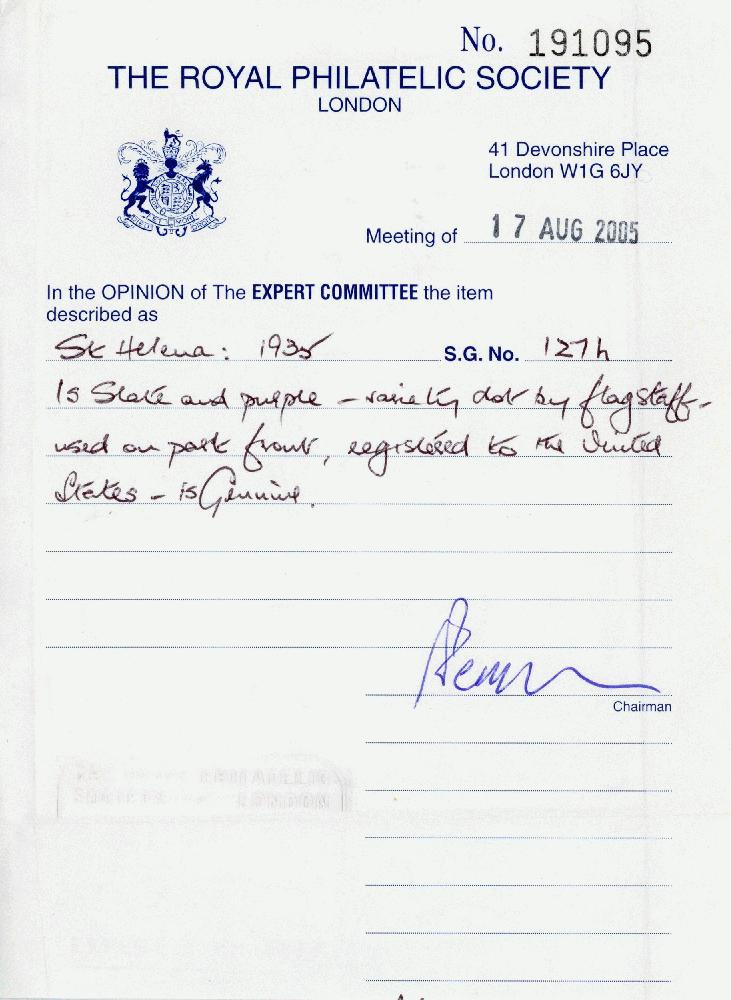 No. 191095
THE ROYAL PHILATELIC SOCIETY
LONDON
41 Devonshire Place
London W1G 6JY
Meeting of 17 AUG 2005
In the OPINION of The EXPERT COMMITTEE the item
described as
St Helena: 1935 S.G. No. 127h
1s Slate and purple - variety dot by flagstaff -
used on part front, registered to the United
States - is Genuine.
Chairman